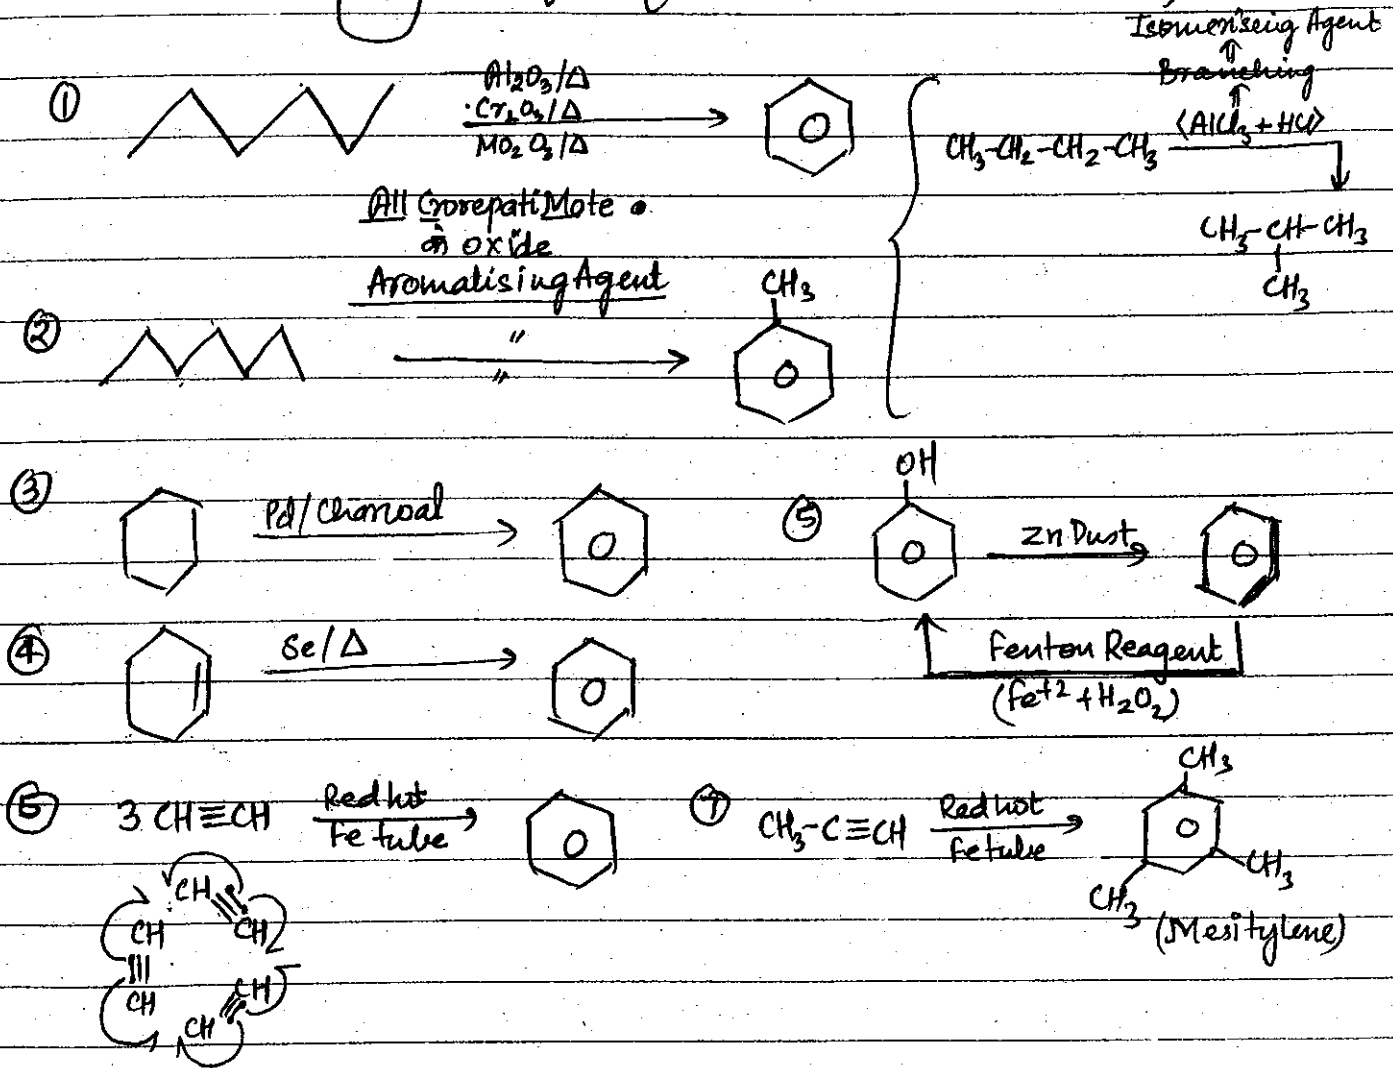 Isomerising Agent
⇑
Branching
⇑
① Al2O3/Δ
Cr2O3/Δ
MO2O3/Δ
CH3-CH2-CH2-CH3 (AlCl3+HCl)
CH3-CH-CH3
CH3
All Crorepati Mote
oxide
Aromatising Agent
CH3
② "
"
③ Pd/Charcoal
OH
⑤ Zn Dust
④ Se/Δ
Fenton Reagent
(Fe+2 + H2O2)
⑥ 3 CH≡CH Red hot
Fe tube
⑦ CH3-C≡CH Red hot
Fe tube
CH3
CH3
CH3
(Mesitylene)
CH
CH
CH
CH
CH
CH